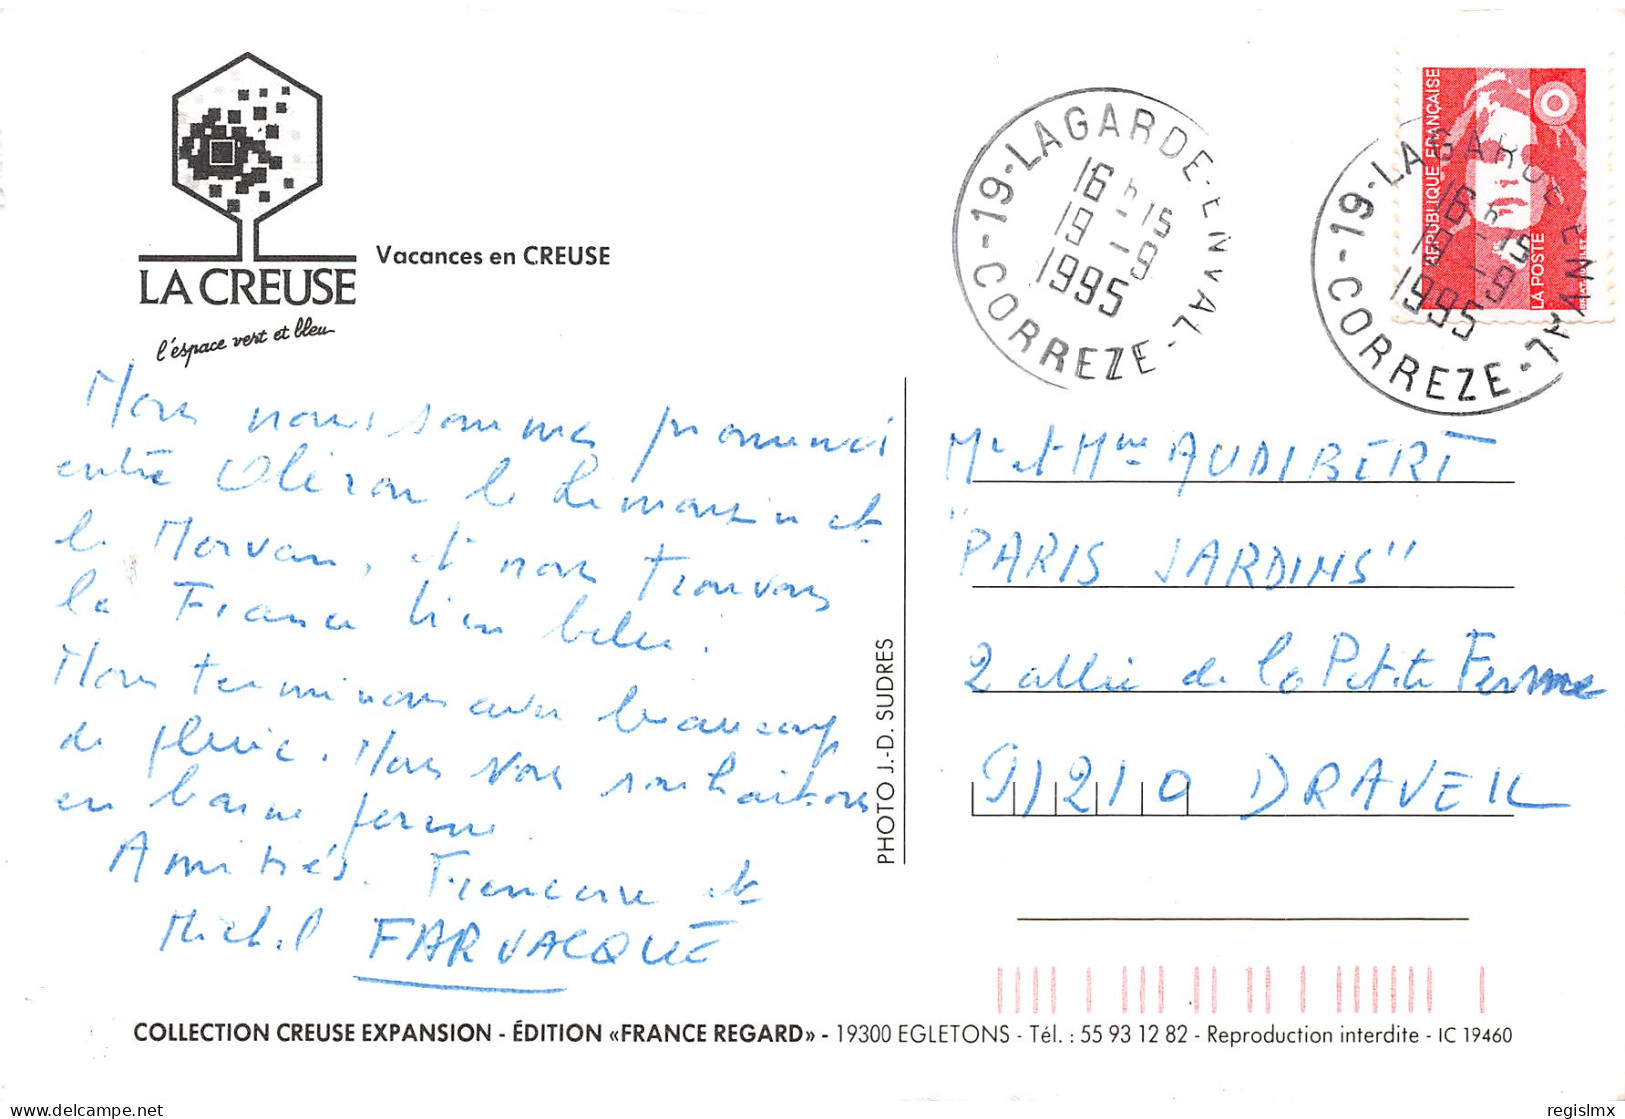 LA CREUSE
l'espace vert et bleu
Vacances en CREUSE
19-LAGARDE-ENVAL-
CORREZE-
16 h 15
19 - 9
1995
RÉPUBLIQUE FRANÇAISE
LA POSTE
19-LAGARDE-ENVAL-
CORREZE-
16 h 15
19 - 9
1995
Nous nous sommes promenés
entre Oléron le Limousin et
le Morvan, et nous trouvons
la France bien belle.
Nous terminons avec beaucoup
de pluie. Nous vous souhaitons
en bonne forme.
Amitiés. Françoise et
Michel FARVACQUE
Mr et Mme AUDIBERT
"PARIS JARDINS"
2 allée de la Petite Ferme
91210 DRAVEIL
PHOTO J.-D. SUDRES
COLLECTION CREUSE EXPANSION - ÉDITION «FRANCE REGARD» - 19300 EGLETONS - Tél. : 55 93 12 82 - Reproduction interdite - IC 19460
delcampe.net
regislmx